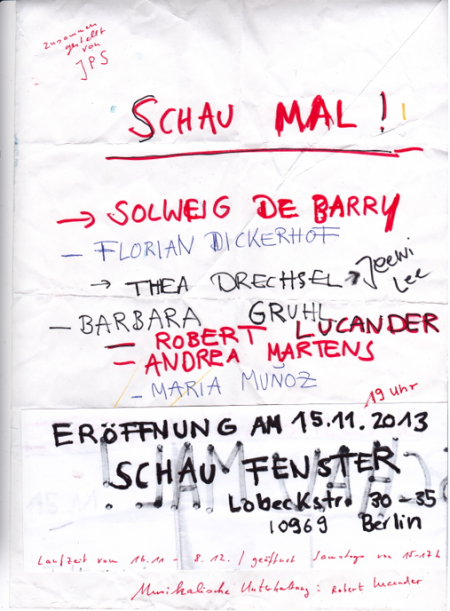 zusammen
gestellt
von
JPS
SCHAU MAL !
→ SOLWEIG DE BARRY
– FLORIAN DICKERHOF
→ THEA DRECHSEL → Jeewi
Lee
– BARBARA GRUHL
– ROBERT LUCANDER
– ANDREA MARTENS
– MARIA MUÑOZ
19 Uhr
ERÖFFNUNG AM 15.11.2013
SCHAU FENSTER
Lobeckstr. 30-35
10969 Berlin
Laufzeit vom 16.11 - 8.12. / geöffnet Samstags von 15-17h
Musikalische Unterhaltung : Robert Lucander